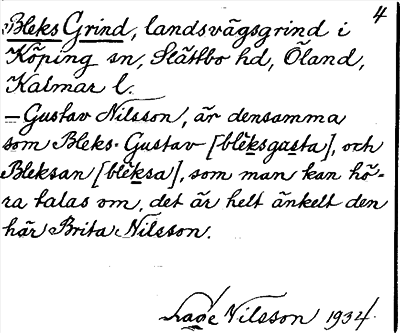 4
Bleks Grind, landsvägsgrind i
Köping sn, Slättbo hd, Öland,
Kalmar l.
— Gustav Nilsson, är densamma
som Bleks-Gustav [blēksgasta], och
Bleksan [blēksa], som man kan hö-
ra talas om, det är helt änkelt den
här Brita Nilsson.
Nilsson 1934.